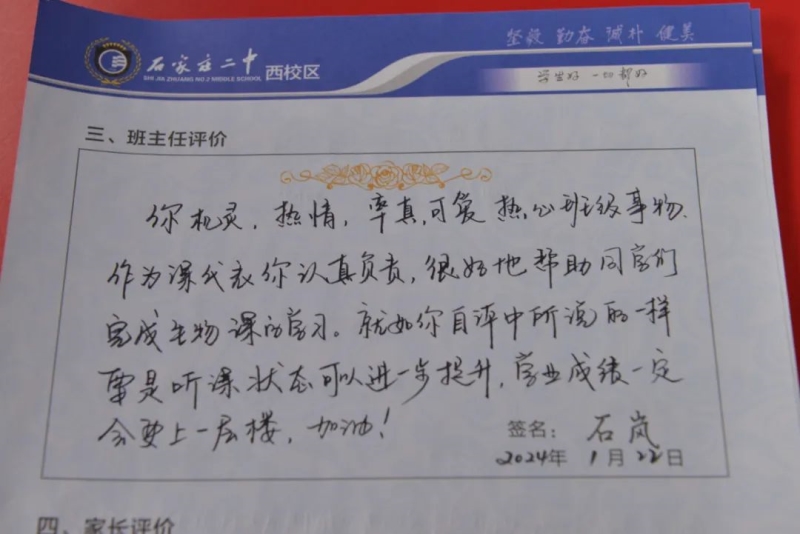 石家庄二中 西校区
SHI JIA ZHUANG NO.2 MIDDLE SCHOOL
坚毅 勤奋 诚朴 健美
学生好 一切都好
三、班主任评价
你机灵，热情，率真，可爱 热心班级事物.
作为课代表你认真负责，很好地帮助同学们
完成生物课的学习。就如你自评中所说的一样
要是听课状态可以进一步提升，学业成绩一定
会更上一层楼，加油！
签名：石岚
2024年 1月22日
四、家长评价